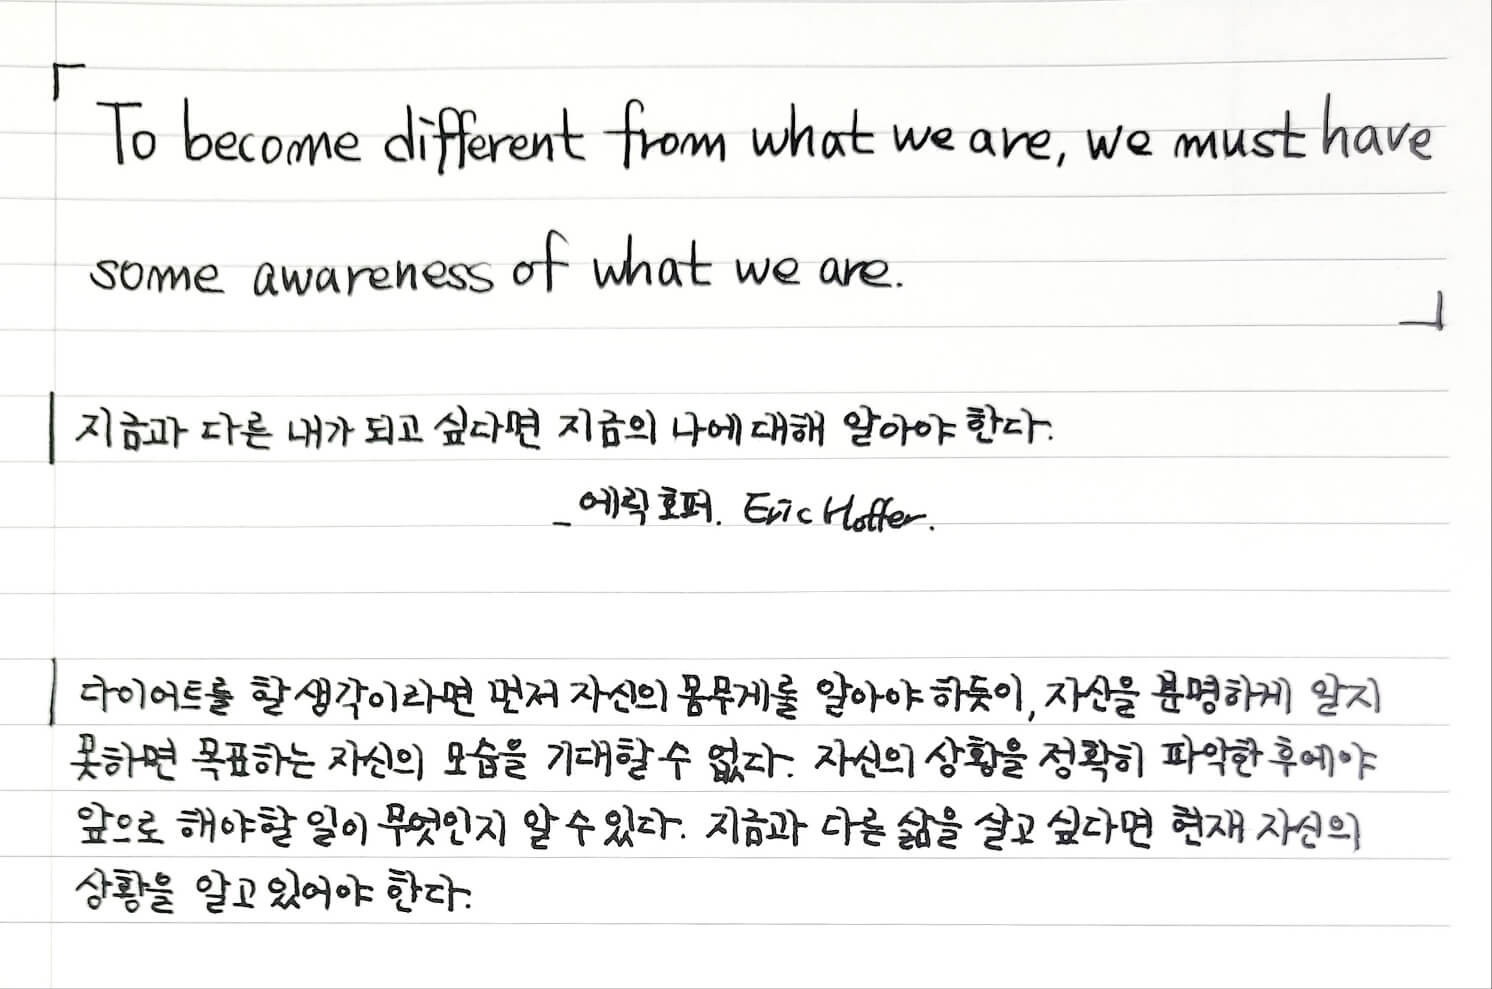 「To become different from what we are, we must have
some awareness of what we are.」
지금과 다른 내가 되고 싶다면 지금의 나에 대해 알아야 한다.
_에릭 호퍼. Eric Hoffer.
다이어트를 할 생각이라면 먼저 자신의 몸무게를 알아야 하듯이, 자산을 분명하게 알지
못하면 목표하는 자신의 모습을 기대할 수 없다. 자신의 상황을 정확히 파악한 후에야
앞으로 해야할 일이 무엇인지 알 수 있다. 지금과 다른 삶을 살고 싶다면 현재 자신의
상황을 알고 있어야 한다.